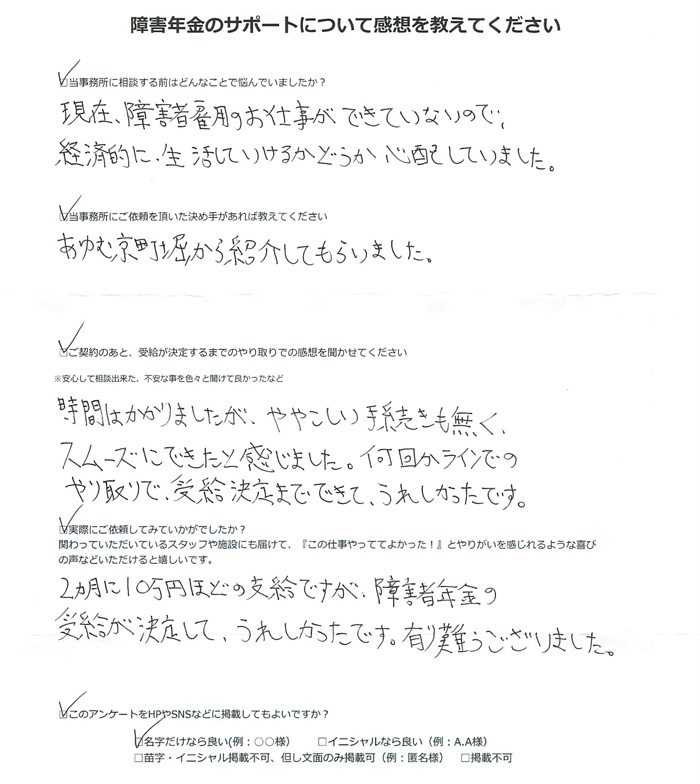 障害年金のサポートについて感想を教えてください
☑当事務所に相談する前はどんなことで悩んでいましたか？
現在、障害者雇用のお仕事ができていないので、
経済的に、生活していけるかどうか心配していました。
☑当事務所にご依頼を頂いた決め手があれば教えてください
あゆむ京町堀から紹介してもらいました。
☑ご契約のあと、受給が決定するまでのやり取りでの感想を聞かせてください
※安心して相談出来た、不安な事を色々と聞けて良かったなど
時間はかかりましたが、ややこしい手続きも無く、
スムーズにできたと感じました。何回かラインでの
やり取りで、受給決定までできて、うれしかったです。
☑実際にご依頼してみていかがでしたか？
関わっていただいているスタッフや施設にも届けて、『この仕事やっててよかった！』とやりがいを感じれるような喜び
の声などいただけると嬉しいです。
2カ月に10万円ほどの支給ですが、障害者年金の
受給が決定して、うれしかったです。有り難うございました。
☑このアンケートをHPやSNSなどに掲載してもよいですか？
☑名字だけなら良い(例：〇〇様）　□イニシャルなら良い（例：A.A様）
□苗字・イニシャル掲載不可、但し文面のみ掲載可（例：匿名様）　□掲載不可